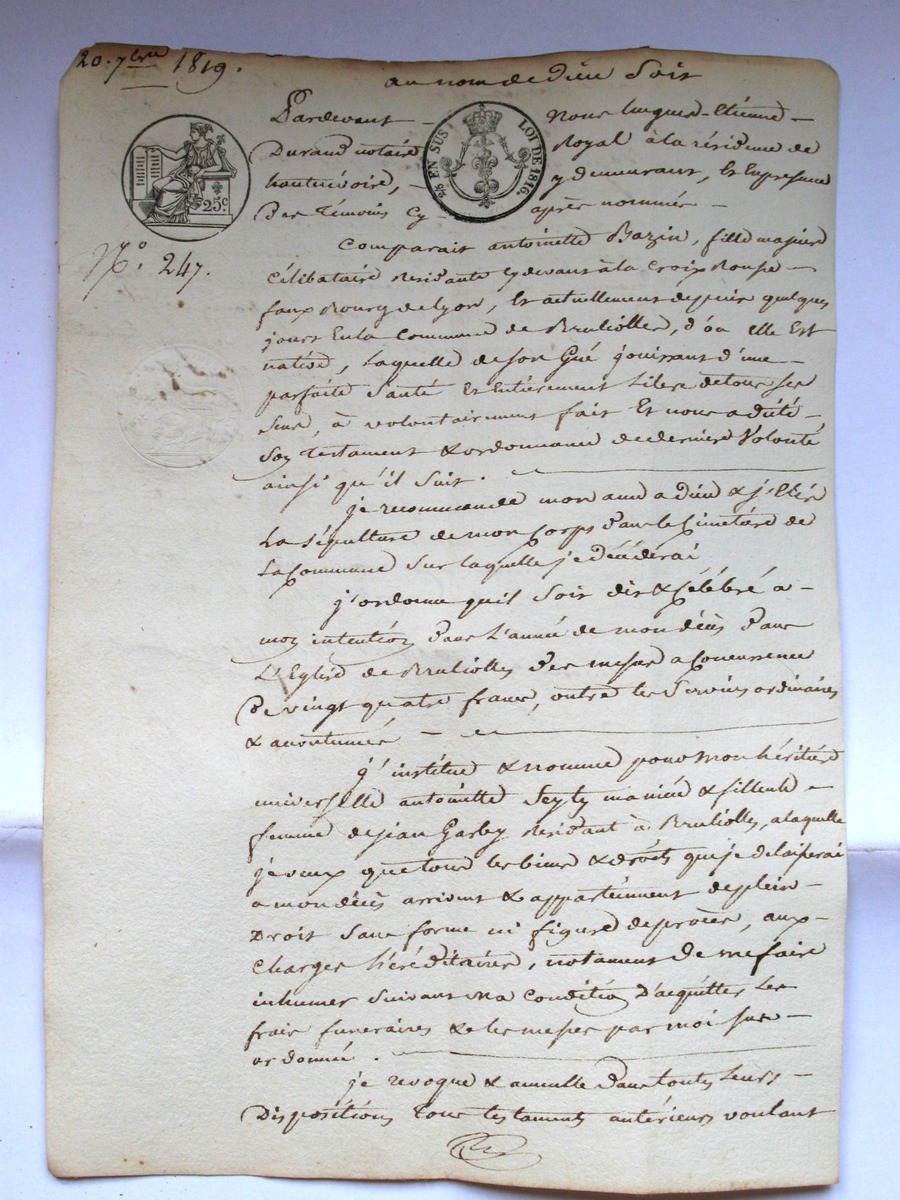 20. 7bre 1819.
au nom de dieu Soit
Pardevant – Nous Etienne –
Durand notaire Royal à la résidence de
hauterivoire, – y demeurant, & En presence
des Témoins Cy – après nommés –
25 EN SUS LOI DE 1816.
25c
N°. 247.
Comparait antoinette Bazin, fille majeure
Célibataire Residante Cydevant à la Croix Rousse –
faux bourg de Lyon, & actuellement depuis quelques
jours En la Commune de Brullioles, d'où elle Est
native, Laquelle de son Gré jouissant d'une –
parfaite Santé Et Entièrement Libre de tous ses
Sens, à volontairement fait Et nous a dicté –
Son Testament & ordonnance de derniere Volonté
ainsi qu'il Suit. –
je recommande mon ame a dieu & j'Elis
La Sépulture de mon Corps dans le Cimetière de
La Commune Sur laquelle je Décéderai
j'ordonne quil Soit dit & Célébré a –
mon intention dans L'année de mon décès dans
L'Eglise de Brullioles des messes a Concurrence
De vingt quatre francs, outre les Services ordinaires
& acoutumés – –
j'institue & nomme pour Mon héritière
universelle antoinette Seyty ma nièce & filleule –
femme de jean Garby Residant à Brullioles, a laquelle
je veux que tous les biens & droits que je delaisserai
a mon décès arrivent & appartiennent de plein –
Droit Sans forme ni figure de procès, aux –
Charges héréditaires, notament De me faire
inhumer Suivant Ma Condition D'acquitter Les
frais funeraires & les messes par moi sus –
ordonné. –
je revoque & annulle dans toutes Leurs –
Dispositions Tous testaments antérieurs voulant